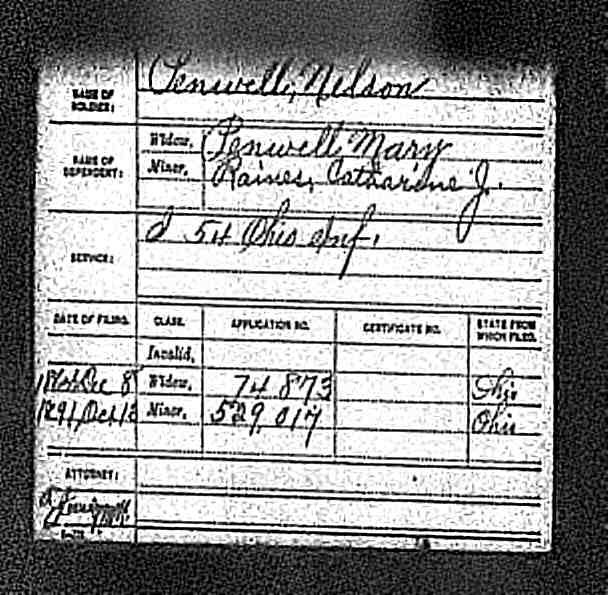 NAME OF SOLDIER: Penwell, Nelson
NAME OF DEPENDENT: Widow, Penwell Mary
Minor, Raines, Catharine J.
SERVICE: I 54 Ohio Inf.
DATE OF FILING. CLASS. APPLICATION NO. CERTIFICATE NO. STATE FROM WHICH FILED.
Invalid,
Dec 8 Widow, 74 873 Ohio
1891, Oct 13 Minor, 529 017 Ohio
ATTORNEY: